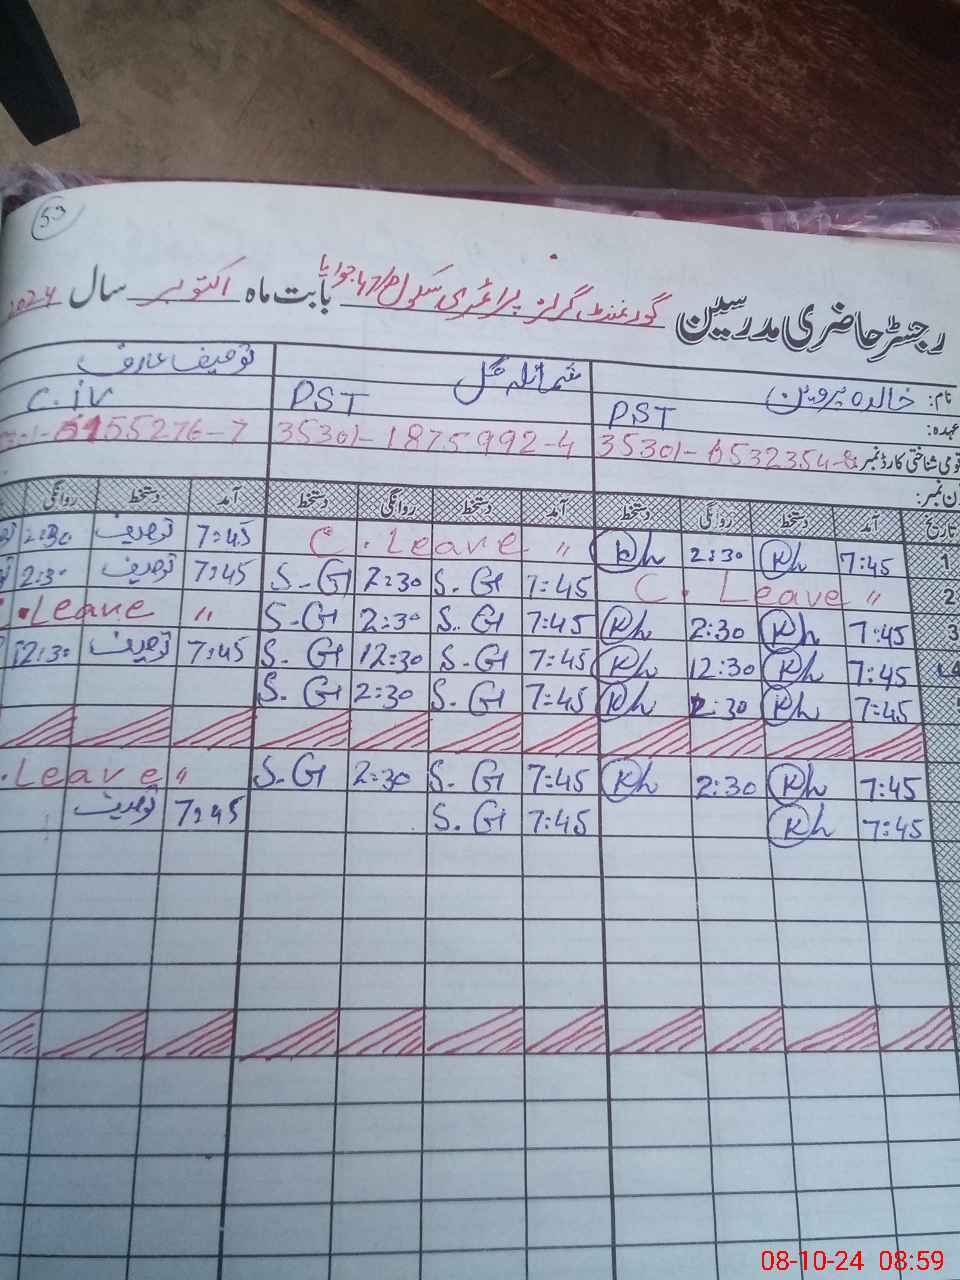 53
رجسٹر حاضری مدرسین گورنمنٹ گرلز پرائمری سکول 47/م جوایا بابت ماہ اکتوبر سال 2024
نام: خالدہ پروین شمائلہ گل توصیف عارف
عہدہ: PST PST C.iv
قومی شناختی کارڈ نمبر: 35301-1875992-4 5155276-7
ن نمبر:
تاریخ آمد دستخط روانگی دستخط آمد دستخط روانگی دستخط آمد دستخط روانگی
1 7:45 Kh 2:30 Kh C. Leave " 7:45 توصیف 2:30
2 C. Leave " 7:45 S.G 2:30 S-G 7:45 توصیف 2:30
3 7:45 Kh 2:30 Kh 7:45 S.G 2:30 S-G " .Leave
4 7:45 Kh 12:30 Kh 7:45 S-G 12:30 S-G 7:45 توصیف 12:30
7:45 Kh 2:30 Kh 7:45 S.G 2:30 S.G
7:45 Kh 2:30 Kh 7:45 S.G 2:30 S-G " .Leave
7:45 Kh 7:45 S.G 7:45 توصیف
08-10-24 08:59